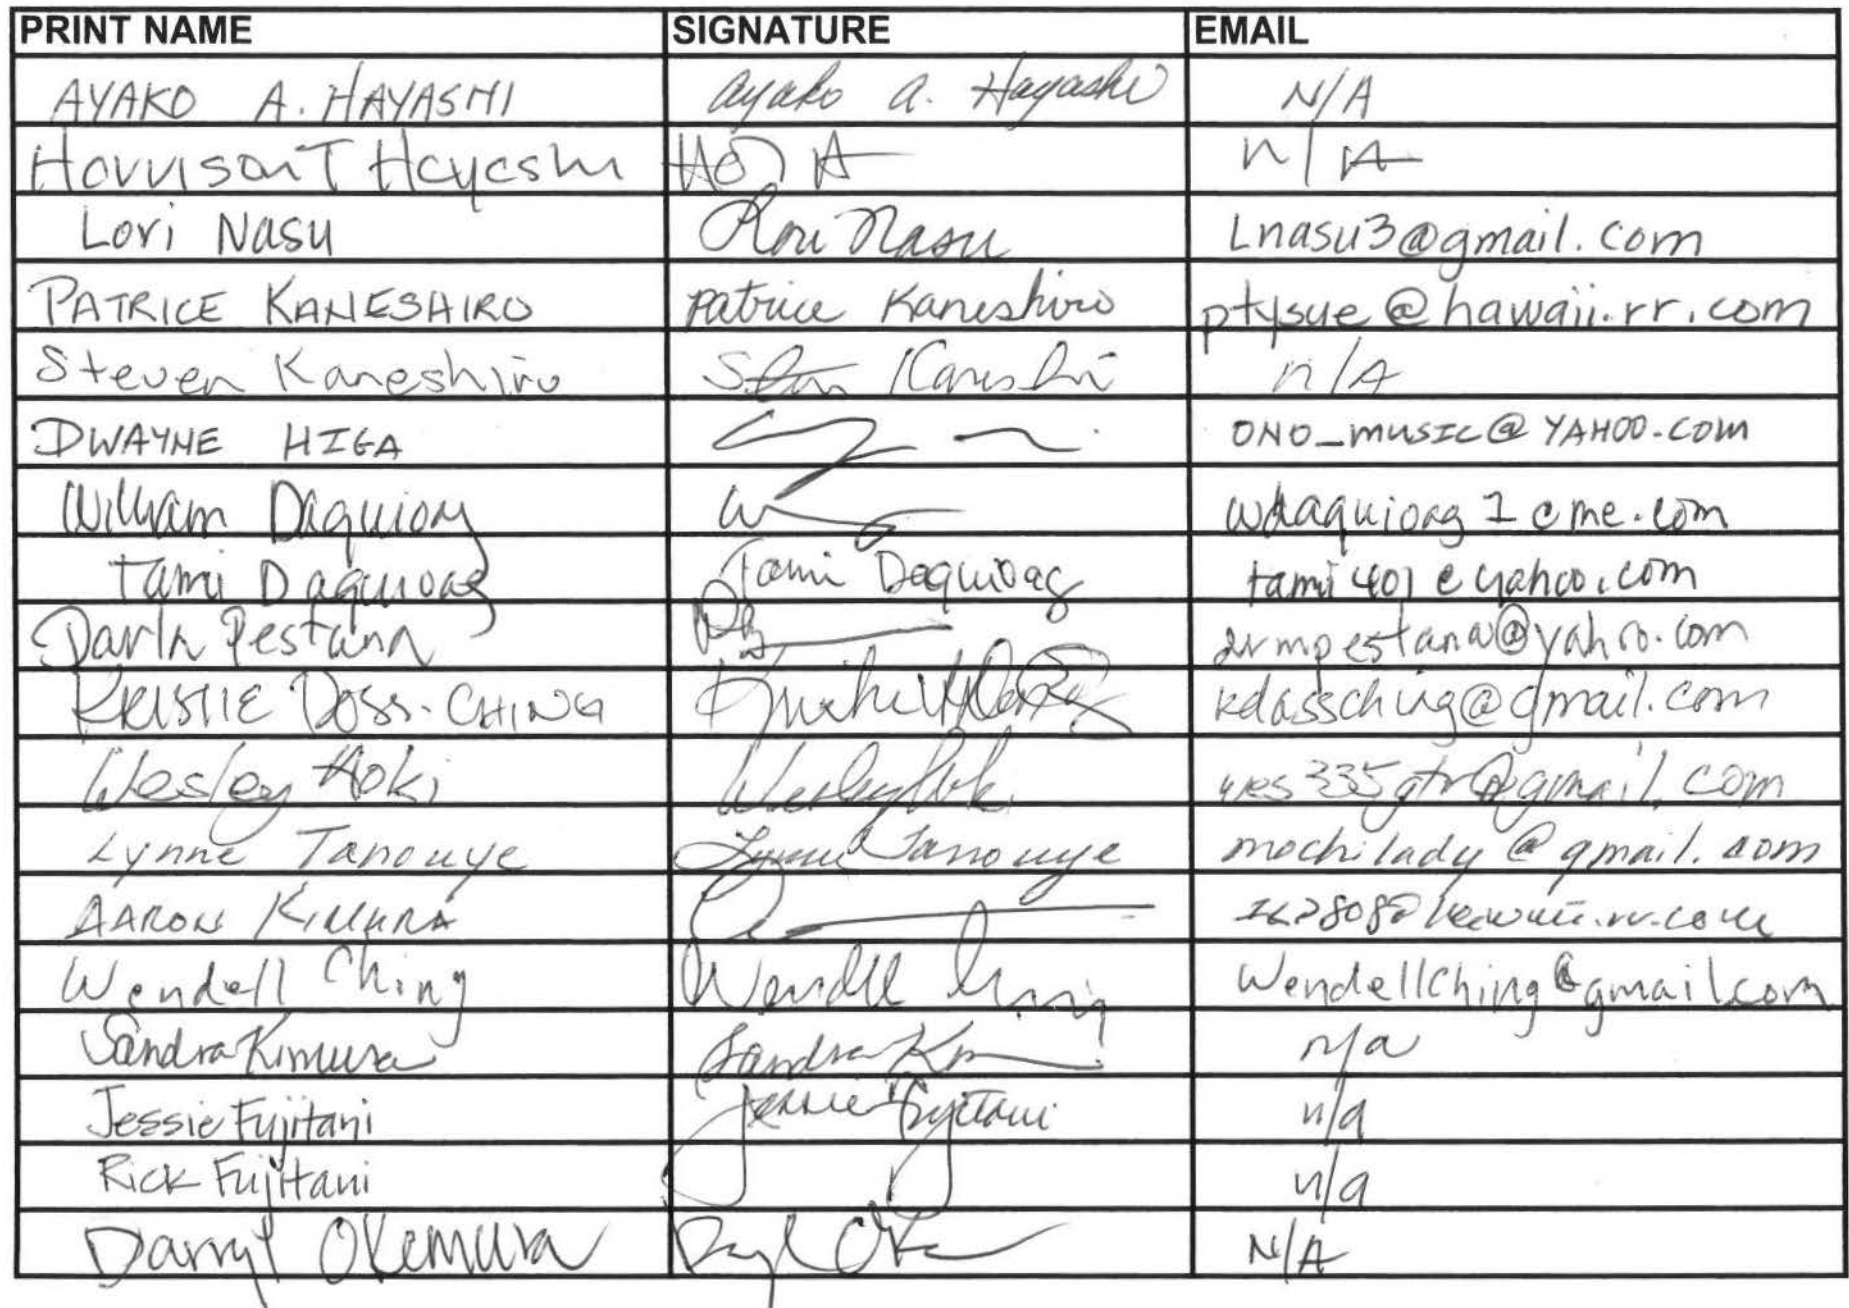 PRINT NAME SIGNATURE EMAIL
AYAKO A. HAYASHI Ayako A. Hayashi N/A
Harrison T Hayashi n/A
Lori Nasu Lori Nasu Lnasu3@gmail.com
PATRICE KANESHIRO Patrice Kaneshiro ptysue@hawaii.rr.com
Steven Kaneshiro n/A
DWAYNE HIGA ONO_MUSIC@YAHOO.COM
William Daquioag wdaquioag1@me.com
Tami Daquioag Tami Daquioag tami401@yahoo.com
Darla Pestana
KRISTIE DOSS-CHING
Wesley Aoki Wesley Aoki wes335gtr@gmail.com
Lynne Tanouye Lynne Tanouye mochilady@gmail.com
AARON KIMURA
Wendell Ching Wendell Ching WendellChing@gmail.com
Sandra Kimura Sandra n/a
Jessie Fujitani Jessie Fujitani n/a
Rick Fujitani n/a
Darryl Okemura N/A